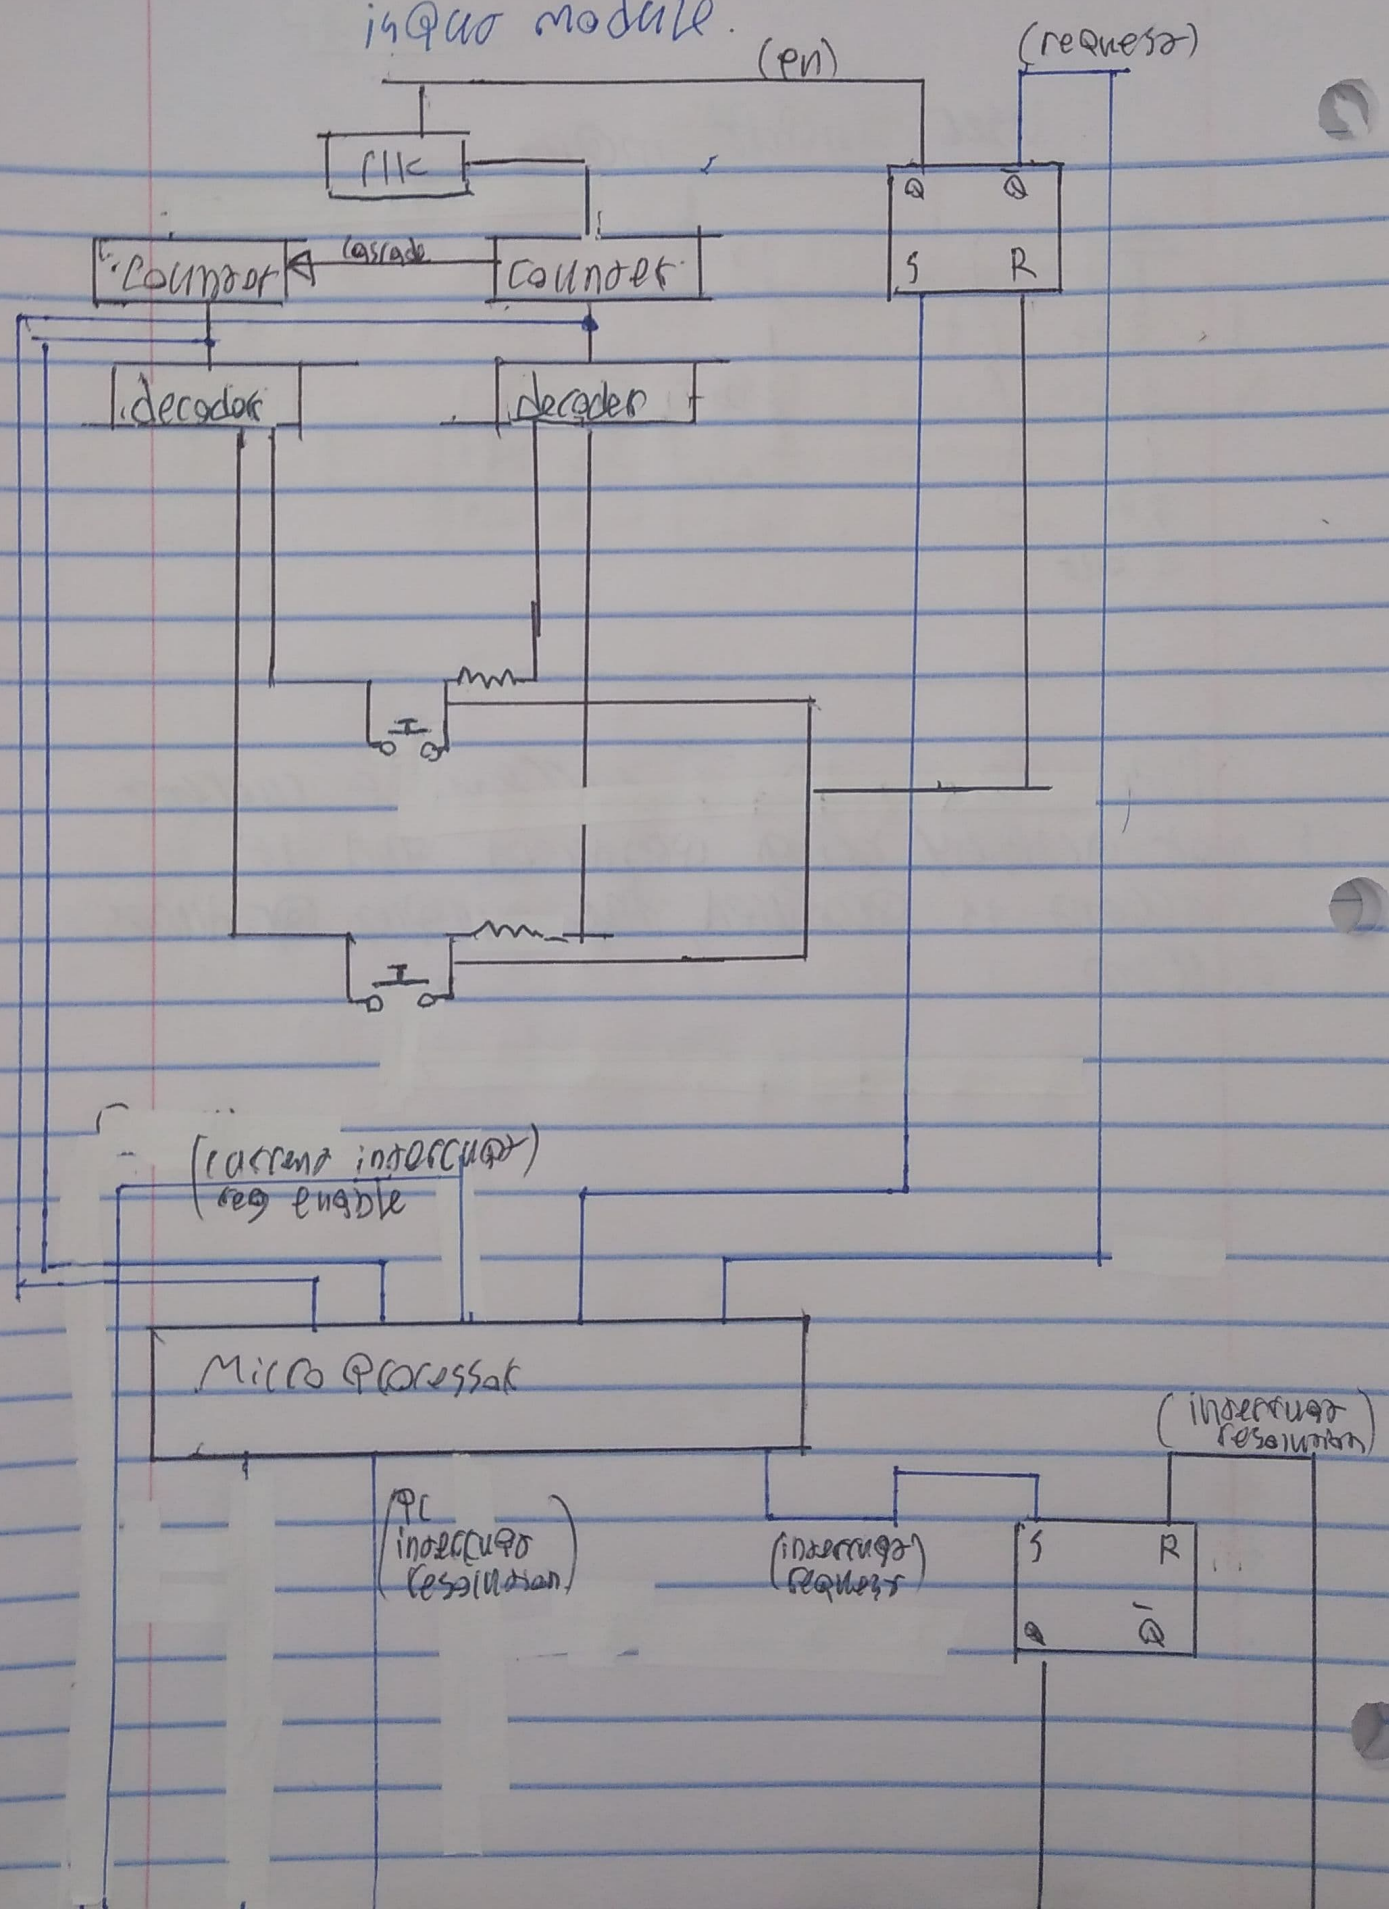 input module.
(en)
(request)
clk
Q Q̅
counter
cascade
counter
S R
decoder
decoder
(current interrupt)
reg enable
Micro processor
(interrupt
resolution)
(PC
interrupt
resolution)
(interrupt
request)
S R
Q Q̅